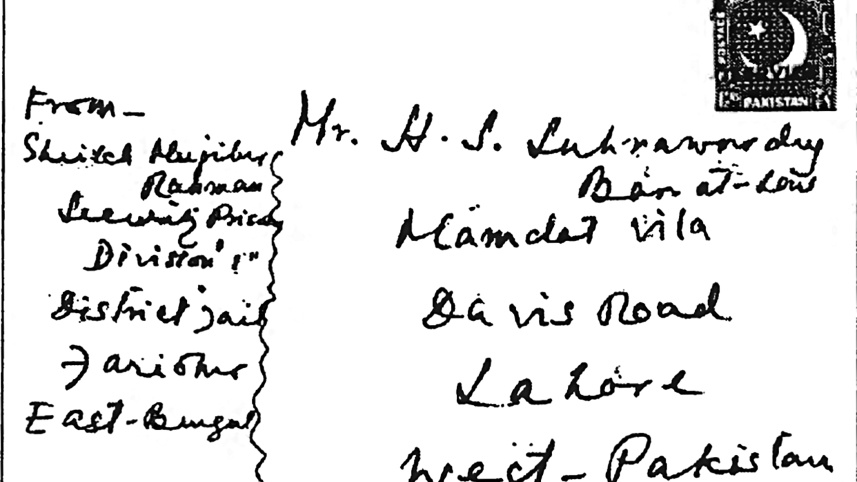 From -
Sheikh Mujibur
Rahman
Security Prison
Division "I"
District Jail
Faridpur
East-Bengal
Mr. H. S. Suhrawardy
Bar at-Law
Mamdot vila
Davis Road
Lahore
West-Pakistan
POSTAGE
PAKISTAN